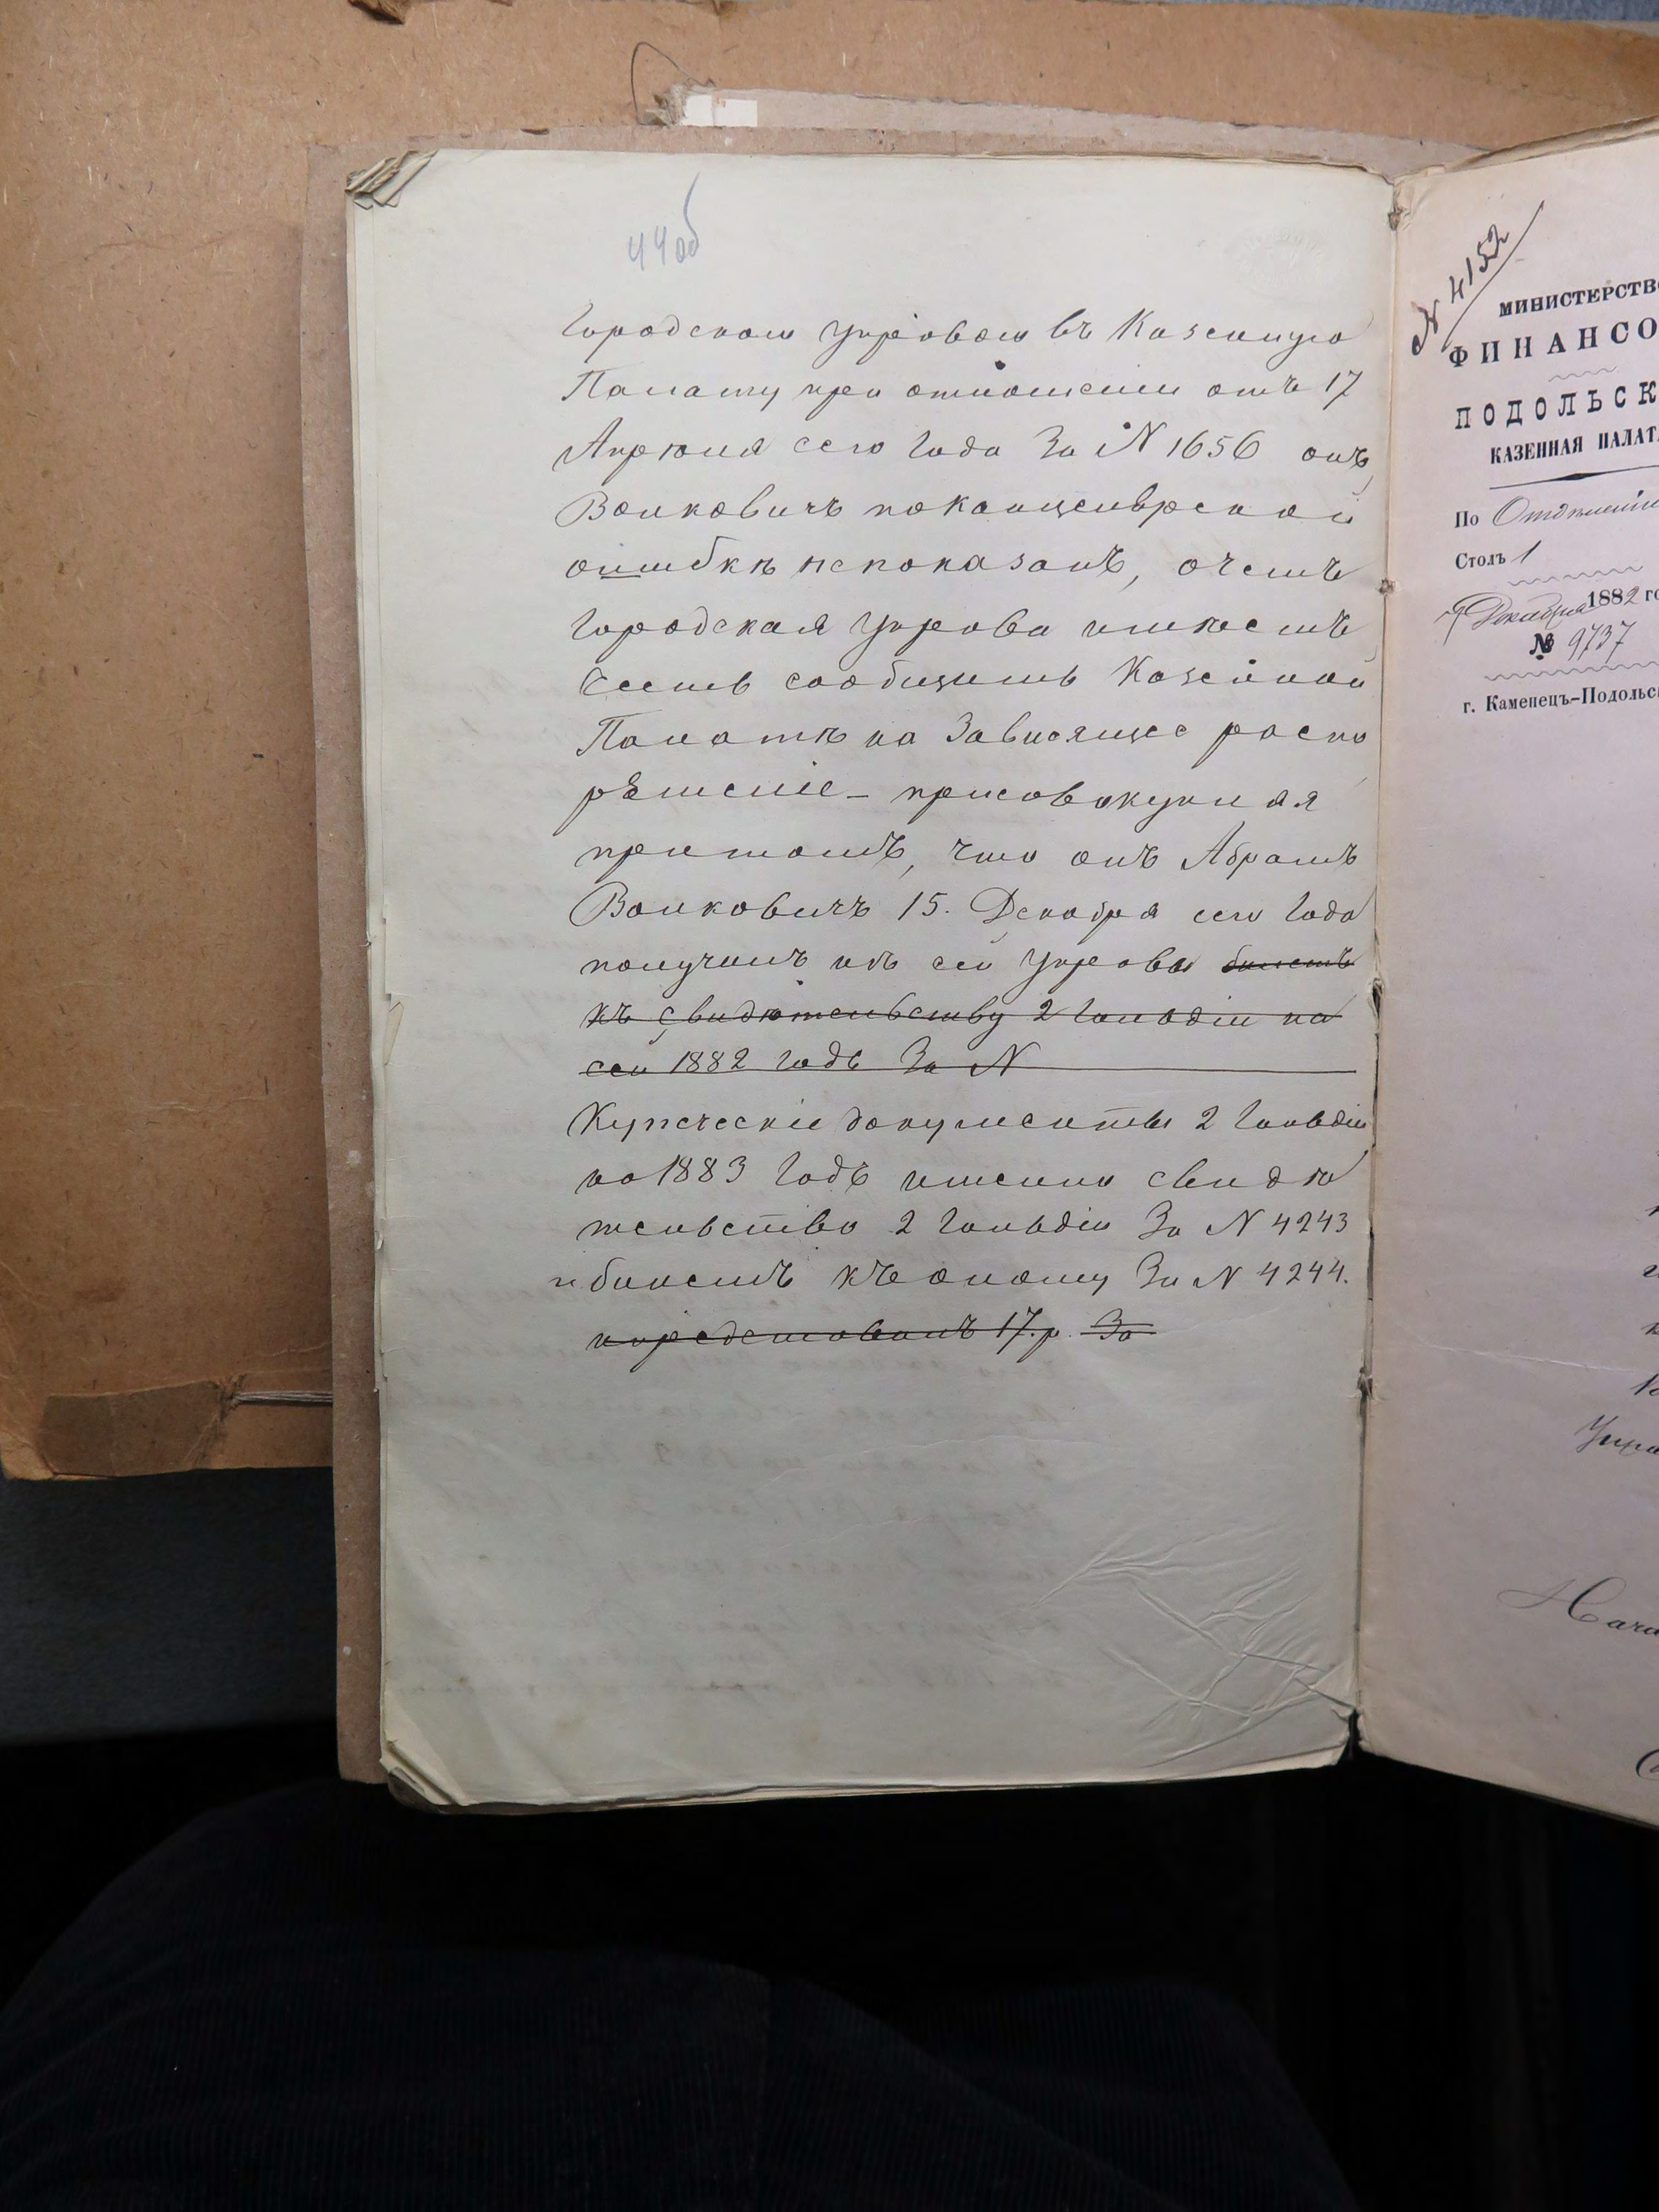 44об
Городскою Управою въ Казенную
Палату при отношеніи отъ 17
Апрѣля сего Года За N 1656 онъ
Волковичъ поканцелярской
ошибкѣ непоказанъ, очемъ
Городская Управа имѣетъ
Честь сообщить Казенной
Палатѣ на Зависящее распо
ряженіе – присовокупляя
притомъ, что онъ Абрамъ
Волковичъ 15. Декабря сего Года
получилъ изъ сей Управы билетъ
къ Свидѣтельству 2 Гильдіи на
сей 1882 годъ За N
Купеческіе документы 2 Гильдіи
на 1883 Годъ именно свидѣ
тельство 2 Гильдіи За N 4243
и билетъ къ оному За N 4244.
представилъ 17.р. За
N 4152
МИНИСТЕРСТВ
ФИНАНСО
ПОДОЛЬСК
КАЗЕННАЯ ПАЛАТ
По Отдѣленію
Столъ 1
Декабря 1882 го
№ 9737
г. Каменецъ-Подольс
Упра
Нача